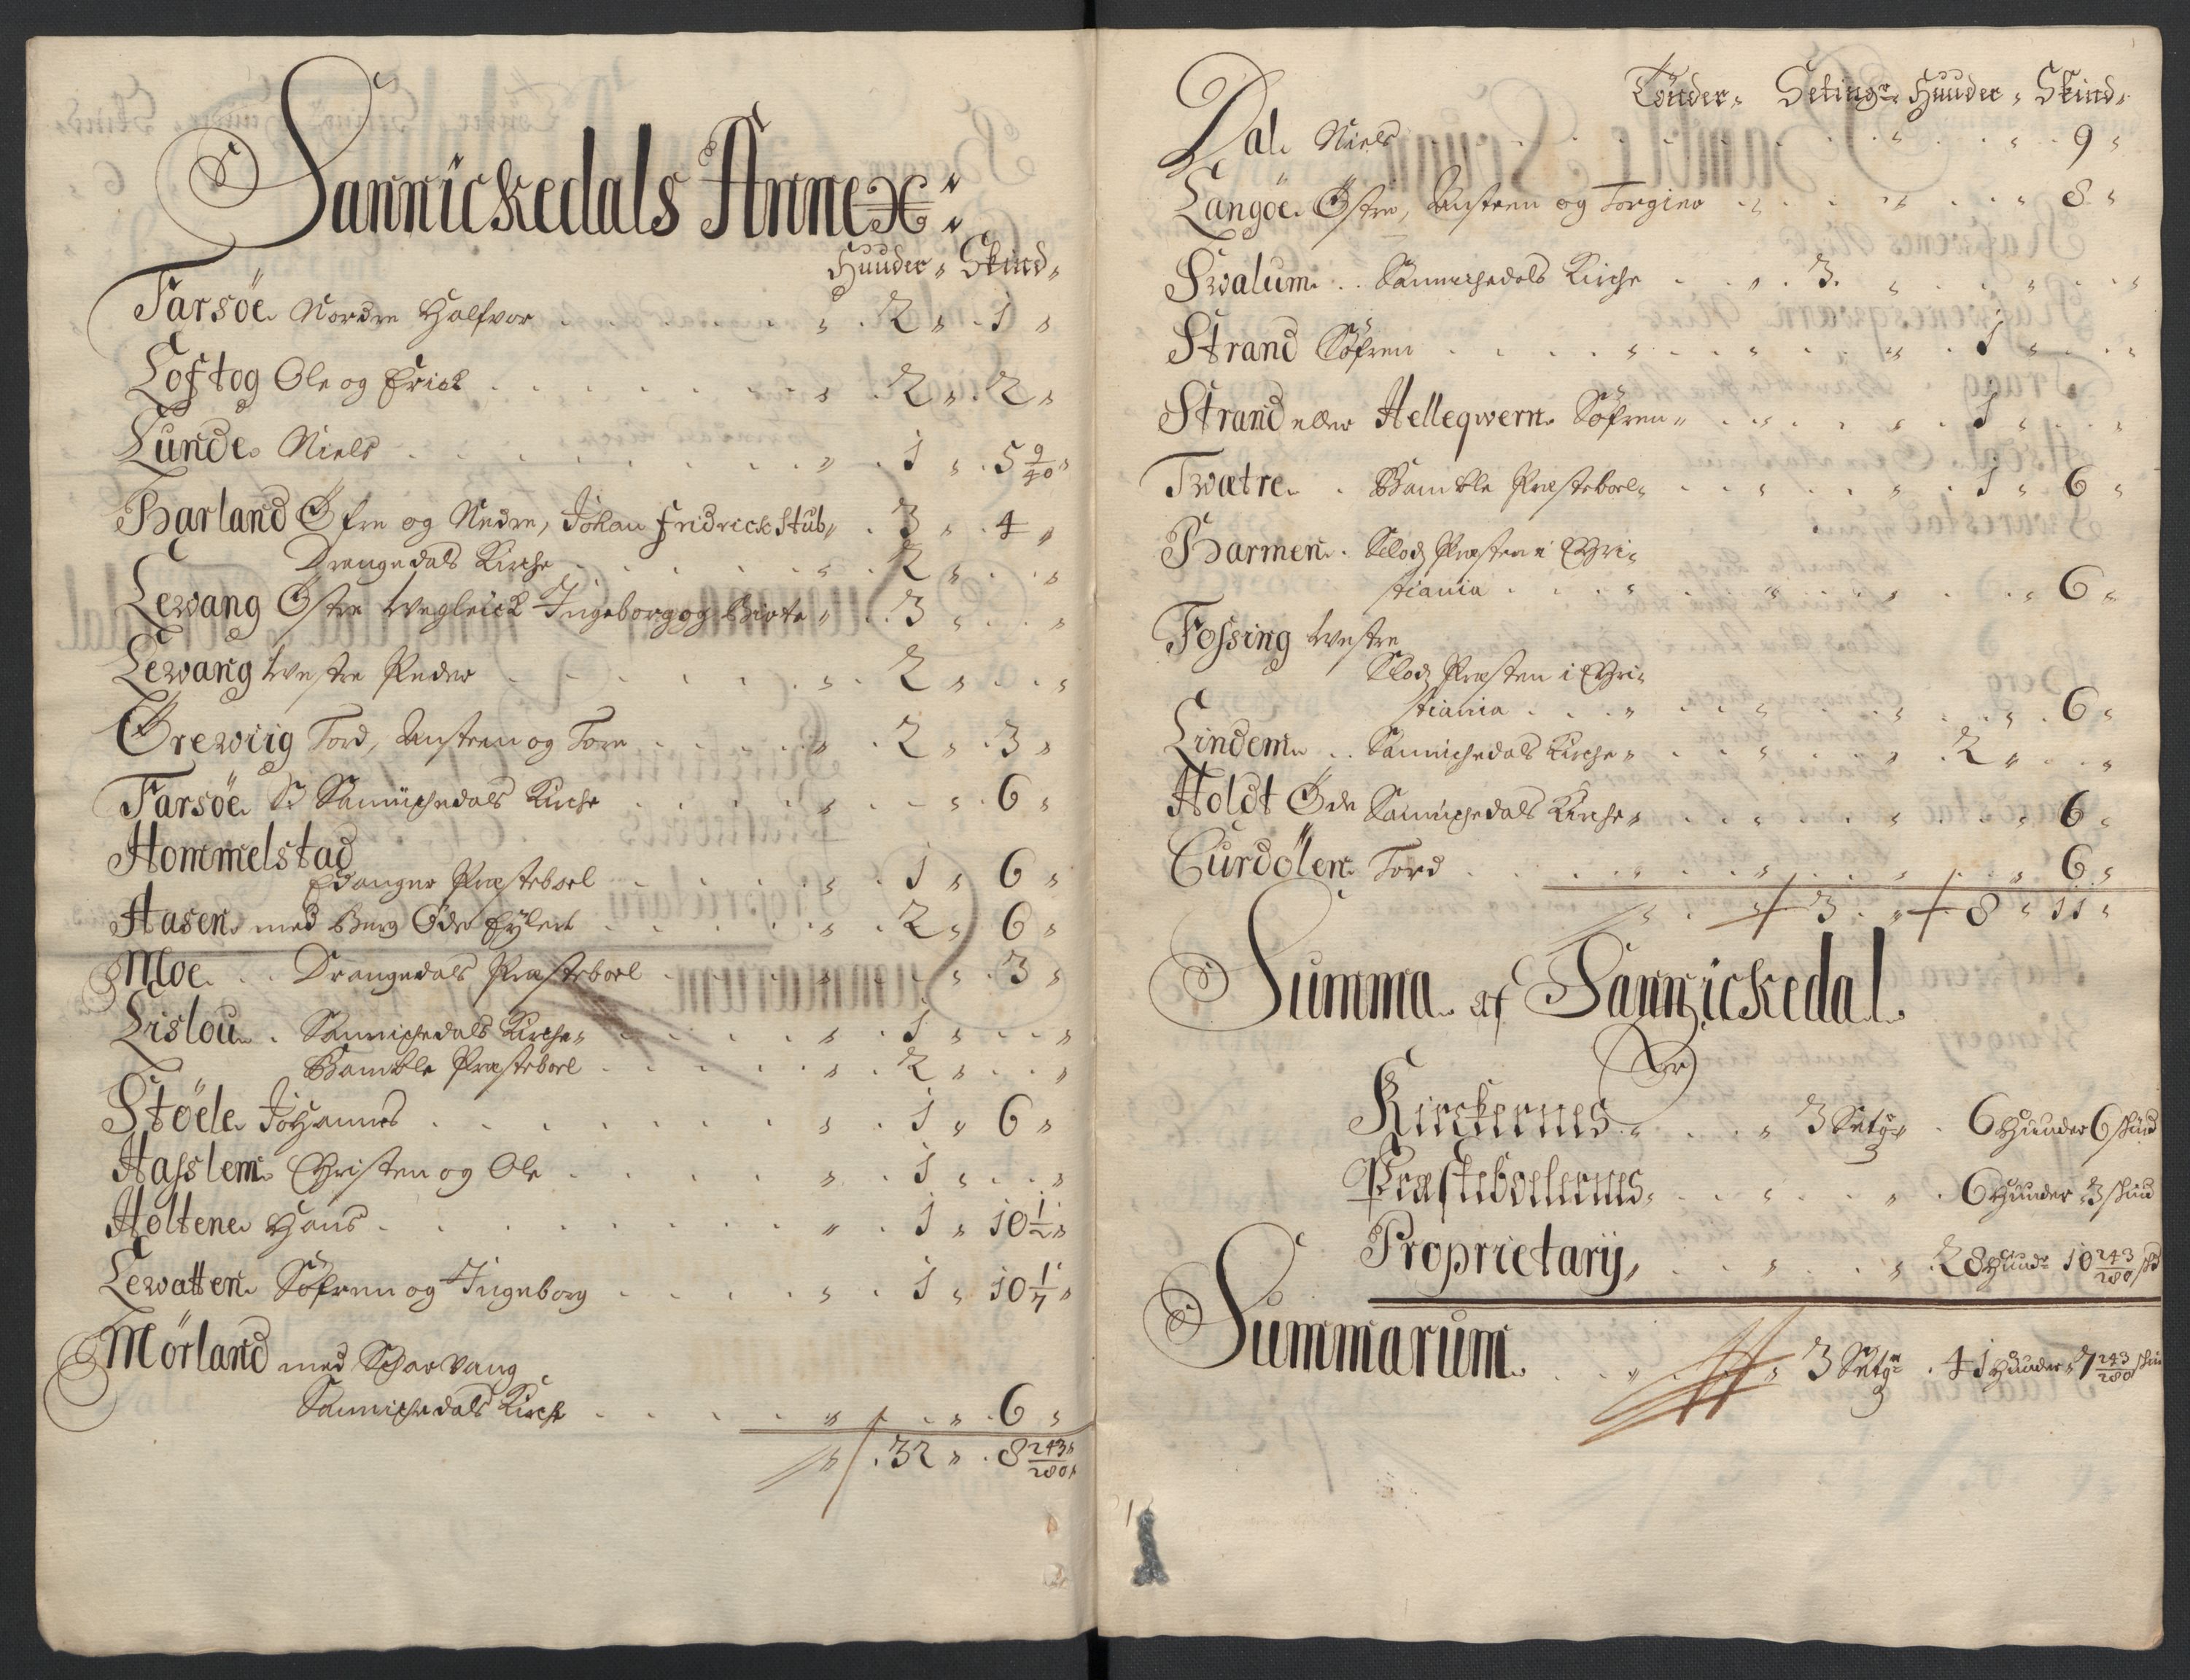 Sannickedals Annex:
Huuder " Skind "
Farsöe Nordre Halfvor . . . " 2 " 1 "
Loftog Ole og Erick . . . " 2 " 2 "
Lunde Niels . . . " 1 " 5 9/40 "
Barland Øfre og Nedre, Johan Fridrick Stub " 3 " 4 "
Drangedals Kirche . . . " 2 " . . "
Lewang Østre Wegleick Ingeborg og Birte " 3 " . . "
Lewang Westre Peder . . . " 2 " . . "
Örewiig Tord, Austen og Tore . . . " 2 " 3 "
Farsöe S: Sannichedals Kirche . . . " . . " 6 "
Hommelstad
Edanger Præsteboel . . . " 1 " 6 "
Aasen med Berg Øde Eylert . . . " 2 " 6 "
Moe . . Drangedals Præsteboel . . . " . . " 3 "
Lislou . Sannichedals Kirche " . . . " 1 " . . "
Bamble Præsteboel . . . " 2 " . . "
Stöele Johannes . . . " 1 " 6 "
Hasslem Christen og Ole . . . " 1 " . . "
Holtene Hans . . . " 1 " 10 1/2 "
Lewatten Söfren og Ingeborg . . . " 1 " 10 1/7 "
Mörland med Scharvang
Sannichedals Kirche . . . " . . " 6 "
" 32 " 8 243/280 "
Tönder " Setingr Huuder " Skind "
Dal Niels . . . " 9 "
Langöe Østre, Austen og Torgier . . . " 8 "
Swalum . . Sannichedals Kirche . . " 3 " . . "
Strand Söfren . . . " 1 " . . "
Strand eller Helleqwern Söfren " . . . " 1 " . . "
Twætre . Bamble Præsteboel " . . . " 1 " 6 "
Barmen . Slodz Præsten i Chri-
stiania . . . " 6 "
Fossing Westre
Slodz Præsten i Chri-
stiania . . . " 6 "
Lindem . . Sannichedals Kirche " . . . " 2 " . . "
Holdt Øde Sannichedals Kirche " . . . " 6 "
Curdölen Tord . . . " 6 "
" 3 " 8 " 11 "
Summa af Sannickedal
Er
Kirckernes " . . . " 3 Setgr . 6 Huuder 6 Skind
Præsteboelernes " . . . " 6 Huuder " 3 Skind
Proprietarij, . . . " 28 Huudr 10 243/280 sk
Summarum . . . " 3 Setgr . 41 Huuder " 7 243/280 Skin